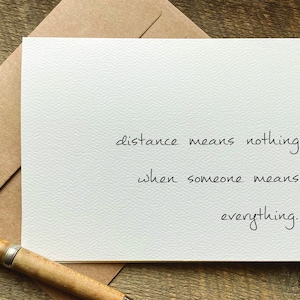 distance means nothing
when someone means
everything.